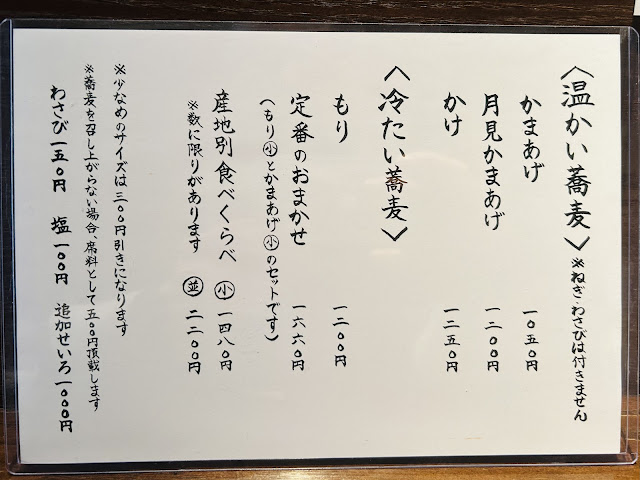 〈温かい蕎麦〉※ねぎ・わさびは付きません
かまあげ 一〇五〇円
月見かまあげ 一二〇〇円
かけ 一二五〇円
〈冷たい蕎麦〉
もり 一二〇〇円
定番のおまかせ 一六六〇円
(もり㊙小とかまあげ小のセットです)
産地別食べくらべ 小 一四八〇円
※数に限りがあります 並 二二〇〇円
※少なめのサイズは三〇〇円引きになります
※蕎麦を召し上がらない場合、席料として五〇〇円頂戴します
わさび一五〇円 塩一〇〇円 追加せいろ一〇〇〇円